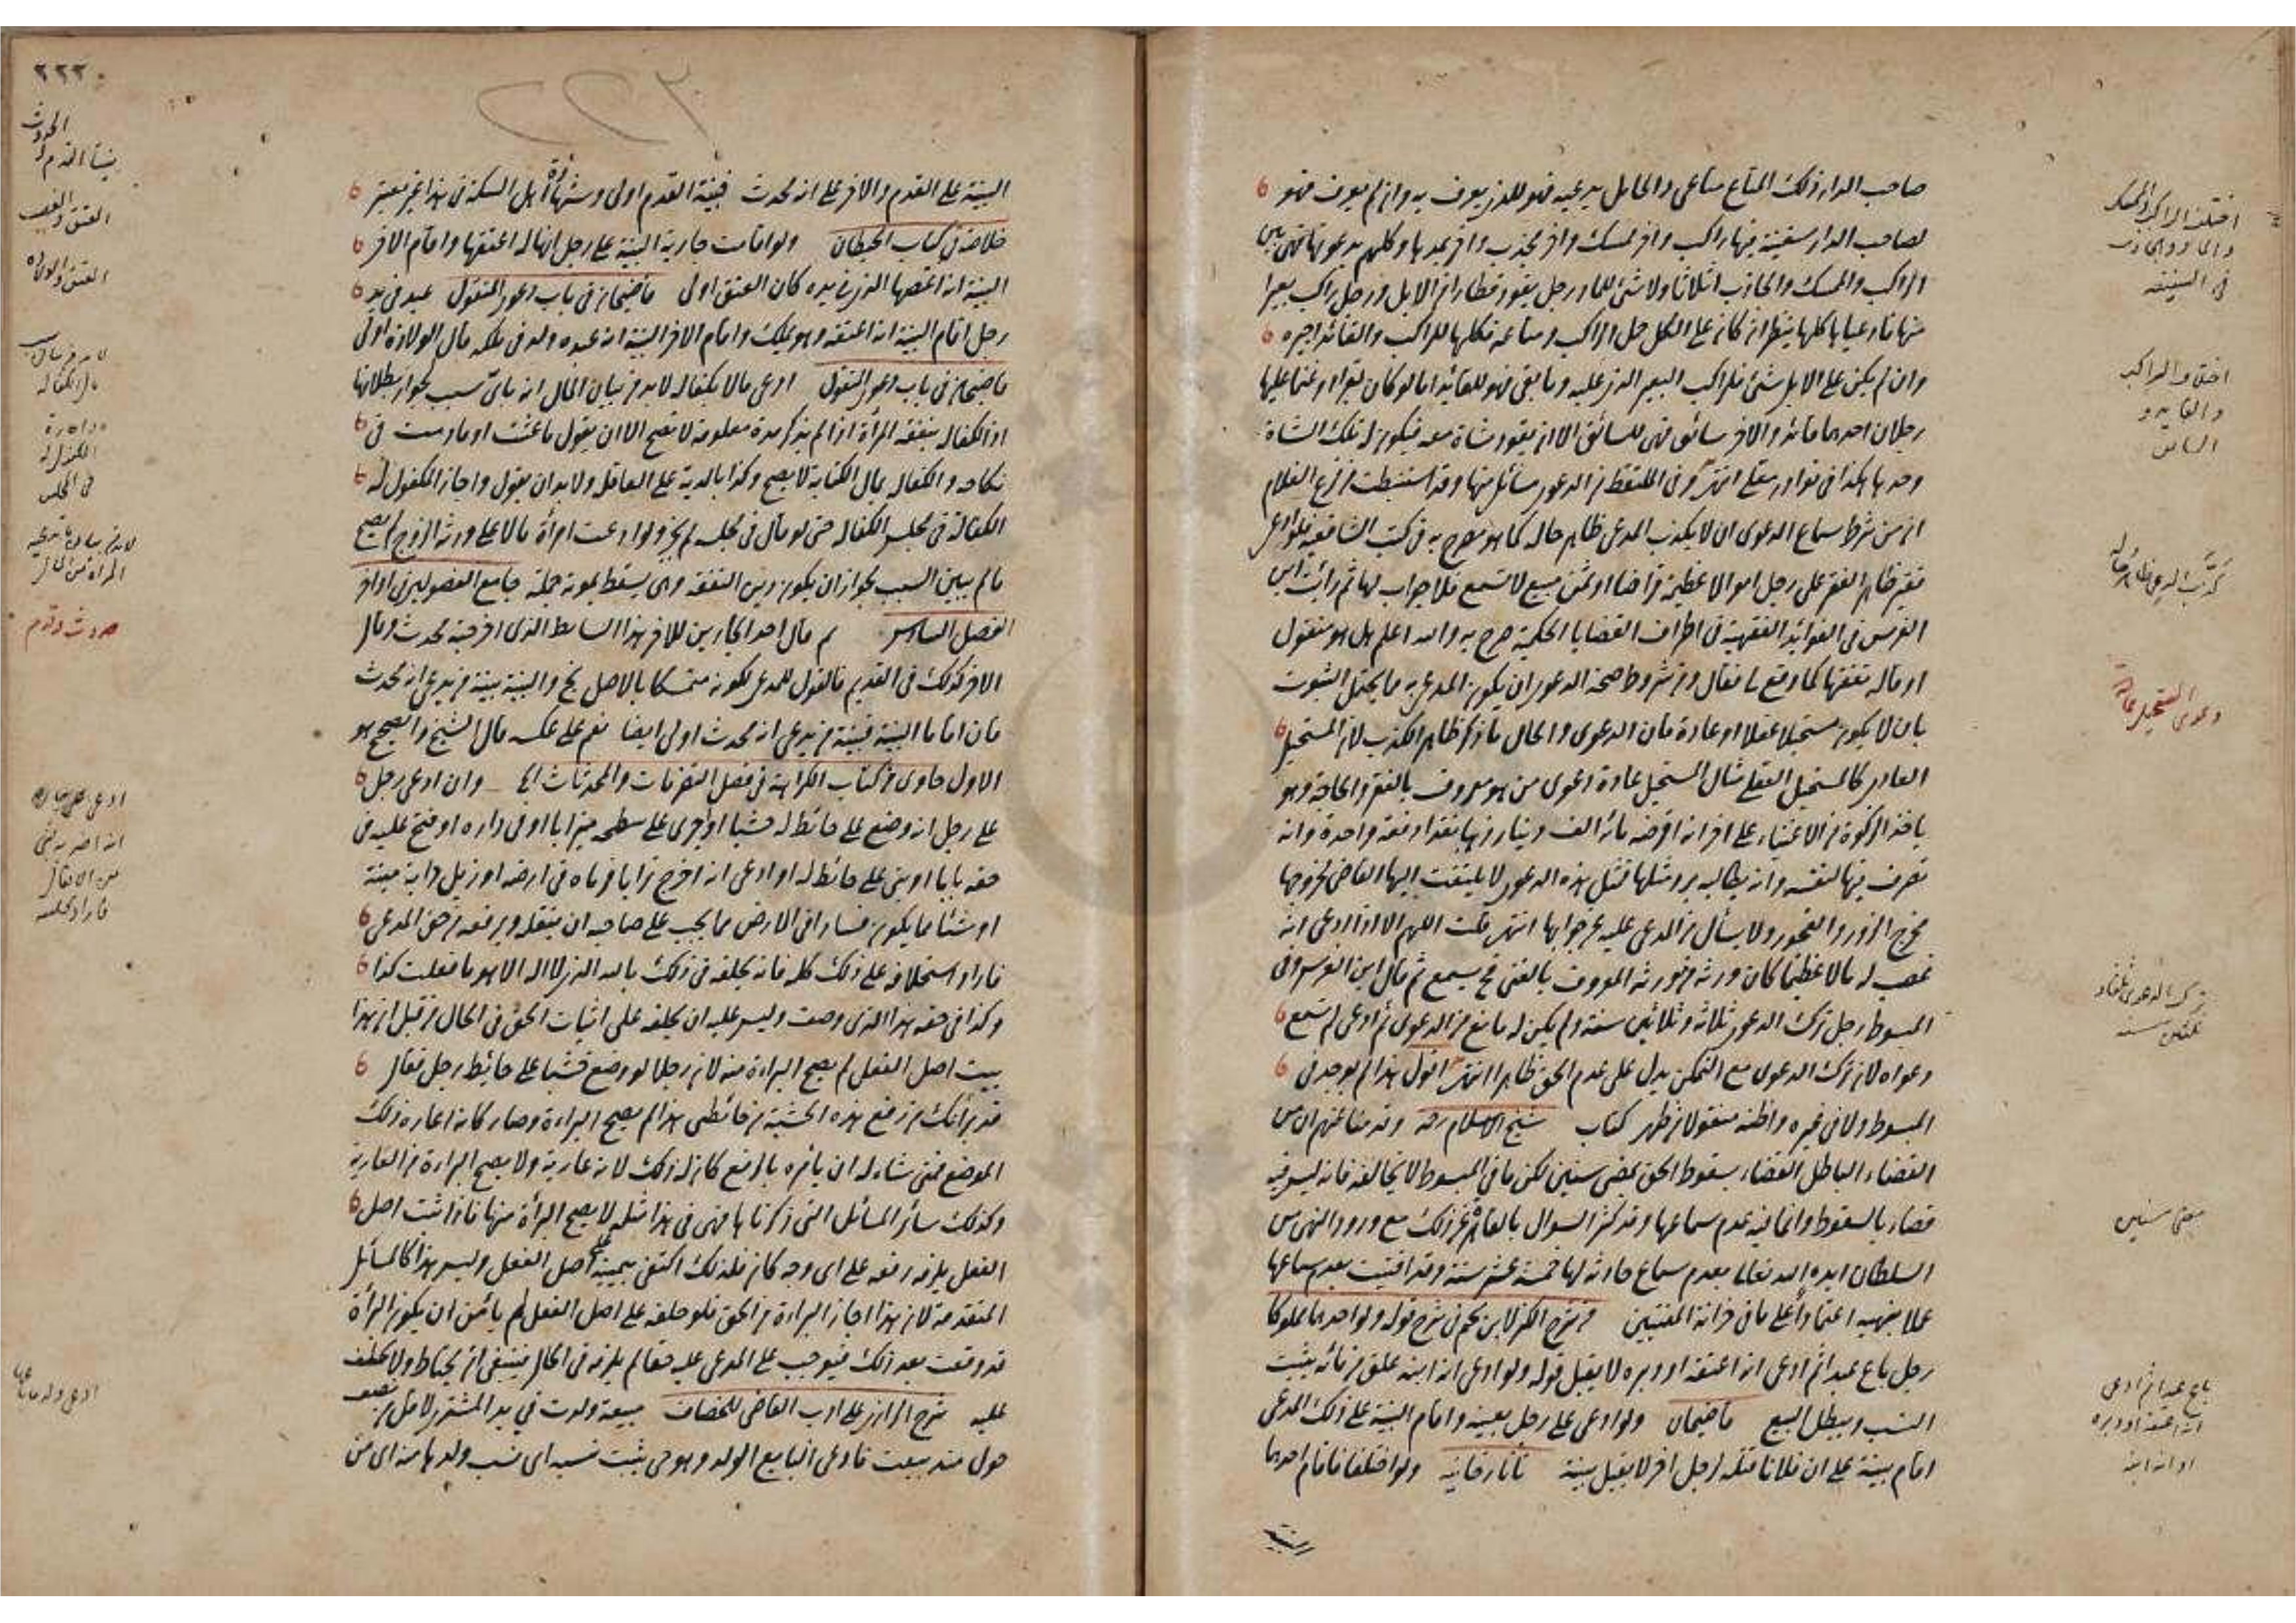 صاحب الدار ذلك المتاع متاعي والحامل يدعيه فهو للذي يعرف به وان لم يعرف فهو
لصاحب الدار سفينة فيها راكب واخر ممسك واخر يجذب واخر يمدها وكلهم يدعونها فهي بين
الراكب والممسك والجاذب اثلاثا ولا شئ للماد رجل يقود قطارا من الابل ورجل راكب بعيرا
منها فادعيا كلها ينظر ان كان على الكل حمل الراكب ومتاعه فكلها للراكب والقائد اجيره
وان لم يكن على الابل شئ فللراكب البعير الذي عليه وما بقي فهو للقائد اما لو كان بقرا او غنما عليها
رجلان احدهما قائد والاخر سائق فهي للسائق الا ان يقود شاة معه فيكون له تلك الشاة
وحدها هكذا في نوادر معلى انتهى وفي الملتقط من الدعوى مسائل منها وقد استنبطت من فرع الغلام
ان من شرط سماع الدعوى ان لا يكذب المدعي ظاهر حاله كما هو مصرح به في كتب الشافعية فلو ادعى
فقير ظاهر الفقر على رجل اموالا عظيمة قرضا او ثمن مبيع لا تسمع فلا جواب لها ثم رأيت ابن
الغرس في الفوائد الفقهية في اطراف القضايا الحكمية صرح به والله اعلم هل هو منقول
او قاله تفقها كما وقع لي فقال ومن شروط صحة الدعوى ان يكون المدعى به مما يحتمل الثبوت
بان لا يكون مستحيلا عقلا او عادة فان الدعوى والحال ما ذكر ظاهر الكذب لان المستحيل
العادي كالمستحيل العقلي مثال المستحيل عادة دعوى من هو معروف بالفقر والحاجة وهو
ياخذ الزكوة من الاغنياء على اخر انه اقرضه مائة الف دينار ذهبا نقدا دفعة واحدة وانه
تصرف فيها لنفسه وانه يطالبه برد مثلها فمثل هذه الدعوى لا يلتفت اليها القاضي لخروجها
مخرج الزور والفجور ولا يسأل المدعى عليه عن جوابها انتهى قلت اللهم الا اذا ادعى انه
غصب له مالا عظيما كان ورثه من مورثه المعروف بالغنى فح يسمع ثم قال ابن الغرس وفي
المبسوط رجل ترك الدعوى ثلاثة وثلاثين سنة ولم يكن له مانع من الدعوى ثم ادعى لم تسمع
دعواه لان ترك الدعوى مع التمكن يدل على عدم الحق ظاهرا انتهى اقول هذا لم يوجد في
المبسوط ولا في غيره واظنه منقولا من ظهر كتاب شيخ الاسلام رحه وقد منا عنهم ان من
القضاء الباطل القضاء بسقوط الحق بمضي سنين لكن ما في المبسوط لا يخالفه فانه ليس فيه
قضاء بالسقوط وانما فيه عدم سماعها وقد كثر السوال بالقاهرة عن ذلك مع ورود النهي من
السلطان ايده الله تعالى بعدم سماع حادثة لها خمسة عشر سنة وقد افتيت بعدم سماعها
عملا بنهيه اعتمادا على ما في خزانة المفتيين من شرح الكنز لابن نجم في شرح قوله ولو احدهما مملوكا
رجل باع عبدا ثم ادعى انه اعتقه او دبره لا يقبل قوله ولو ادعى انه ابنه علق من مائه يثبت
النسب ويبطل البيع قاضيخان ولو ادعى على رجل بعينه واقام البينة على ذلك المدعى
اقام بينة على ان فلانا قتله لرجل اخر لا يقبل بينة تاتارخانيه ولو اختلفا فاقام احدهما
البينة
اختلف الراكب والممسك
والماد والجاذب
في السفينة
اختلاف الراكب
والقايد و
السائق
كذب المدعي ظاهر حاله
دعوى المستحيل عادة
ترك الدعوى ثلثة و
ثلثين سنة
مضي سنين
باع عبدا ثم ادعى
انه اعتقه او دبره
او انه ابنه
٢٢٢
البينة على القدم والاخر على انه محدث فبينة القدم اولى وشهادة اهل السكة في هذا غير معتبر
خلاصة في كتاب الحيطان ولو اقامت جارية البينة على رجل انها له اعتقها واقام الاخر
البينة انه اغتصبها الذي في يده كان العتق اولى قاضيخان في باب دعوى المنقول عبد في يد
رجل اقام البينة انه اعتقه وهو يملكه واقام الاخر البينة انه عبده ولد في ملكه قال الولادة اولى
قاضيخان في باب دعوى المنقول ادعى مالا بكفالة لا بد من بيان المال انه باي سبب لجواز بطلانها
اذ الكفالة بنفقة المرأة اذا لم يذكر مدة معلومة لا تصح الا ان يقول ما عشت او ما دمت في
نكاحه والكفالة بمال الكتابة لا يصح وكذا بالدية على العاقلة ولا بد ان يقول واجاز المكفول له
الكفالة في مجلس الكفالة حتى لو قال في مجلسه لم يجز ولو ادعت امرأة مالا على ورثة الزوج لم يصح
ما لم يبين السبب لجواز ان يكون دين النفقة وهي يسقط بموته جملة جامع الفصولين في اواخر
الفصل السادس م قال احد الجارين للاخر هذا الساباط الذي اخرجته محدث وقال
الاخر كذلك في القديم فالقول للمدعي لكونه متمسكا بالاصل نج والبينة بينة من يدعي انه محدث
فان اقاما البينة فبينة من يدعي انه محدث اولى ايضا نعم على عكسه قال الشيخ والصحيح هو
الاول حاوى من كتاب الكراهة في فصل التصرفات والمحدثات وان ادعى رجل
على رجل انه وضع على حائط له خشبا او اجرى على سطحه ميزابا او في داره او فتح عليه في
حقه بابا او بنى على حائط له او ادعى انه اخرج ترابا فرماه في ارضه او زبل دابة ميتة
او شيئا مما يكون فسادا في الارض مما يجب على صاحبه ان ينقله ويرفعه من حق المدعي
فاراد استحلافه على ذلك كله فانه يحلفه في ذلك بالله الذي لا اله الا هو ما فعلت كذا
وكذا في حقه هذا الذي وصف وليس عليه ان يحلفه على اثبات الحق في الحال من قبل ان هذا
يثبت اصل الفعل لم يصح البراءة منه لان رجلا لو وضع خشبا على حائط رجل فقال
قد برأتك من رفع هذه الخشبة من حائطي هذا لم يصح البراءة وصار كانه اعاره ذلك
الموضع فمتى شاء له ان يامره بالرفع كان له ذلك لانه عارية ولا يصح البراءة من العارية
وكذلك سائر المسائل التي ذكرناها فهي في هذا مثله لا يصح البرأة منها فاذا ثبت اصل
الفعل يلزمه رفعه على اي وجه كان فلذلك اكتفى بيمينه على اصل الفعل وليس هذا كالمسائل
المتقدمة لان هذا اجاز البراءة من الحق فلو حلفه على اصل الفعل لم يأمن ان يكون البرأة
قد وقعت بعد ذلك فيوجب على المدعى عليه حقا لم يلزمه في الحال فينبغي ان يحتاط ولا يحلف
عليه شرح الرازي على ادب القاضي للخصاف مبيعة ولدت في يد المشتري لاقل من نصف
حول منذ بيعت فادعى البايع الولد وهو حي يثبت نسبه اي نسب ولدها منه اي من
الحدوث
بينة القدم و
العتق والغصب
العتق والولادة
لا بد من بيان سبب
مال الكفالة
المكفول له
في المجلس
حدوث وقدم
فاراد تحليفه